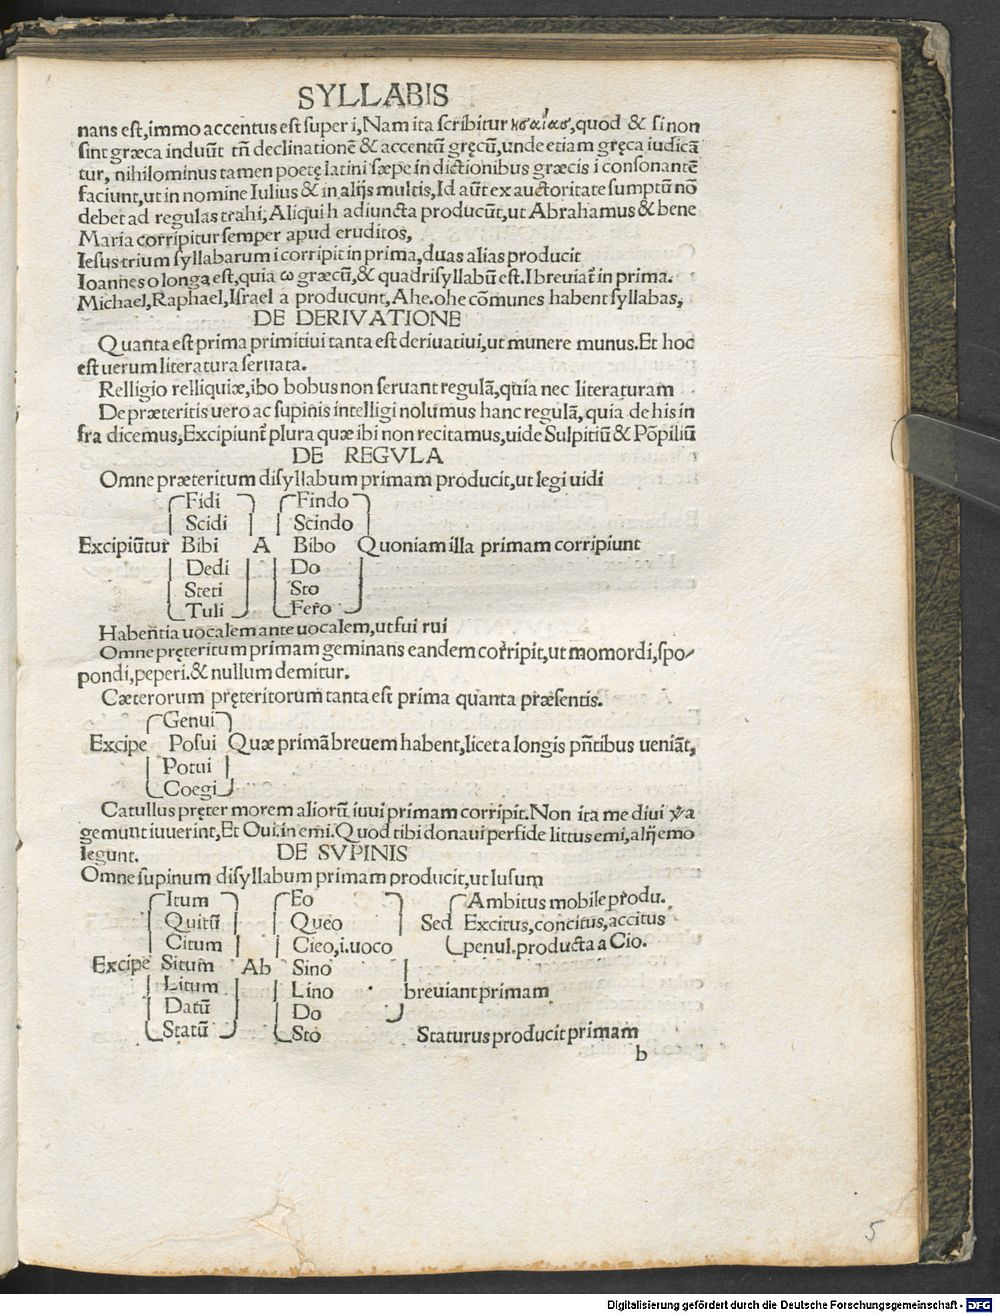 SYLLABIS
nans est,immo accentus est super i,Nam ita scribitur ησαΐασ,quod & si non
sint græca induūt tn̄ declinationē & accentū gręcū,unde etiam gręca iudicā
tur, nihilominus tamen poetę latini sæpe in dictionibus græcis i consonantē
faciunt,ut in nomine Iulius & in alijs multis,Id aūt ex auctoritate sumptū nō
debet ad regulas trahi,Aliqui h adiuncta producūt,ut Abrahamus & bene
Maria corripitur semper apud eruditos,
Iesus trium syllabarum i corripit in prima,duas alias producit
Ioannes o longa est,quia ω græcū,& quadrisyllabū est.I breuiat̄ in prima.
Michael,Raphael,Israel a producunt,Ahe.ohe cōmunes habent syllabas,
DE DERIVATIONE
Quanta est prima primitiui tanta est deriuatiui,ut munere munus.Et hoc
est uerum literatura seruata.
Relligio relliquiæ,ibo bobus non seruant regulā,quia nec literaturam
De præteritis uero ac supinis intelligi nolumus hanc regulā,quia de his in
fra dicemus,Excipiunt̄ plura quæ ibi non recitamus,uide Sulpitiū & Pōpiliū
DE REGVLA
Omne præteritum disyllabum primam producit,ut legi uidi
Fidi Findo
Scidi Scindo
Excipiūtur Bibi A Bibo Quoniam illa primam corripiunt
Dedi Do
Steti Sto
Tuli Fero
Habentia uocalem ante uocalem,ut fui rui
Omne pręteritum primam geminans eandem corripit,ut momordi,spo-
pondi,peperi.& nullum demitur.
Cæterorum pręteritorum tanta est prima quanta præsentis.
Genui
Excipe Posui Quæ primā breuem habent,licet a longis pn̄tibus ueniāt,
Potui
Coegi
Catullus pręter morem aliorū iuui primam corripit.Non ita me diui
gemunt iuuerint,Et Oui.in emi.Quod tibi donaui perfide littus emi,alij emo
legunt. DE SVPINIS
Omne supinum disyllabum primam producit,ut lusum
Itum Eo Ambitus mobile produ.
Quitū Queo Sed Excitus,concitus,accitus
Citum Cieo,i.uoco penul.producta a Cio.
Excipe Situm Ab Sino
Litum Lino breuiant primam
Datū Do
Statū Sto Staturus producit primam
b
5
Digitalisierung gefördert durch die Deutsche Forschungsgemeinschaft - DFG